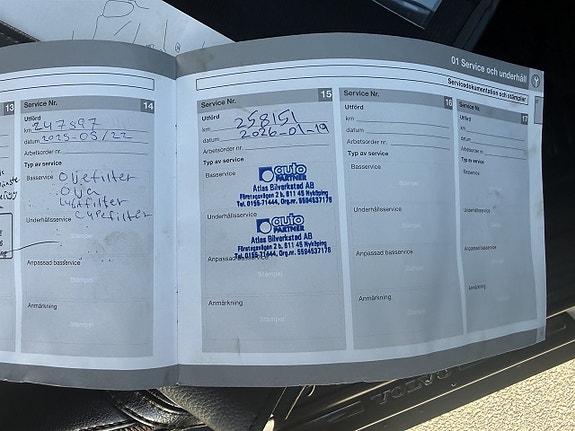 01 Service och underhåll
Servicedokumentation och stämplar
13
Service Nr. 14
Utförd
km 247897
datum 2025-05/22
Arbetsorder nr.
Typ av service
Basservice
Oljefilter
Olja
Luftfilter
Underhållsservice
Anpassad basservice
Stämpel
Anmärkning
Stämpel
Service Nr. 15
Utförd
km 258151
datum 2026-01-19
Arbetsorder nr.
Typ av service
Basservice
auto
PARTNER
Atlas Bilverkstad AB
Företagsvägen 2 b, 611 45 Nyköping
Tel. 0155-71444, Org.nr. 5594537176
Underhållsservice
auto
PARTNER
Atlas Bilverkstad AB
Företagsvägen 2 b, 611 45 Nyköping
Tel. 0155-71444, Org.nr. 5594537176
Anpassad basservice
Stämpel
Anmärkning
Stämpel
Service Nr. 16
Utförd
km
datum
Arbetsorder nr.
Typ av service
Basservice
Stämpel
Underhållsservice
Stämpel
Anpassad basservice
Stämpel
Anmärkning
Stämpel
Service Nr. 17
Utförd
km
datum
Arbetsorder nr.
Typ av service
Basservice
Underhållsservice
Anpassad basservice
Anmärkning
VOLVO